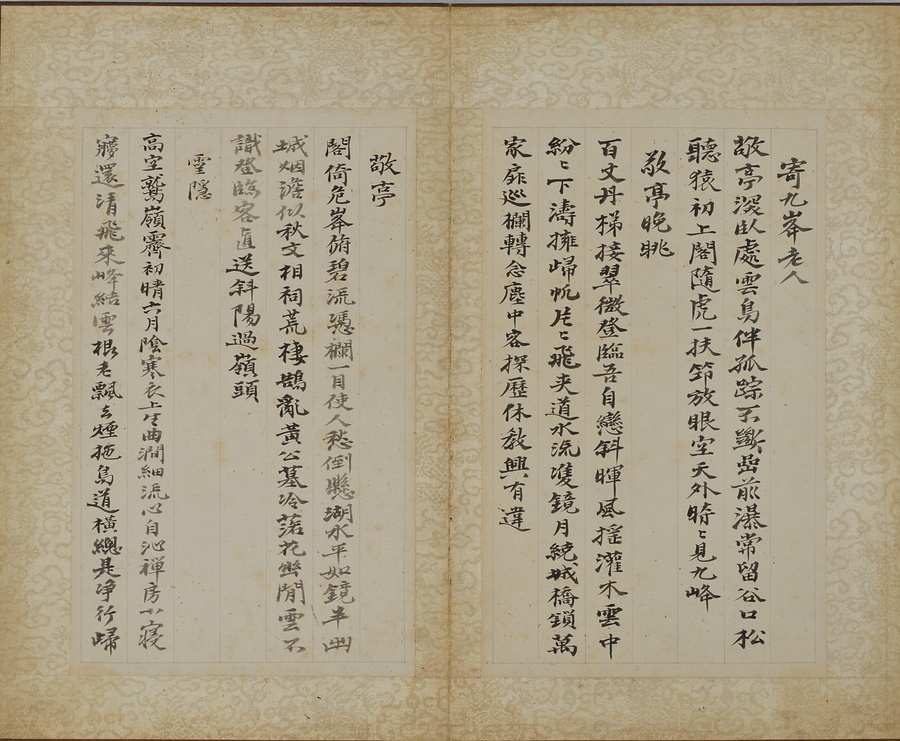 寄九峯老人
敬亭深臥處雲鳥伴孤踪不斷嵒前瀑常留谷口松
聽猿初上閣隨虎一扶筇放眼空天外時〻見九峰
敬亭晚眺
百丈丹梯接翠微登臨吾自戀斜暉風搖灌木雲中
紛〻下濤擁歸帆片〻飛夾道水流雙鏡月繞城橋鎖萬
家扉巡欄轉念塵中客探歷休教興有違
敬亭
閣倚危峯俯碧流憑欄一目使人愁倒懸湖水平如鏡半幽
城烟澹似秋文相祠荒棲鵲亂黃公墓冷落花幽閒雲不
識登臨客直送斜陽過嶺頭
靈隱
高空鷲嶺霽初晴六月陰寒衣上生曲澗細流心自沁禪房少寢
夢還清飛來峰結雲根老飄去煙拖鳥道橫總是淨行歸